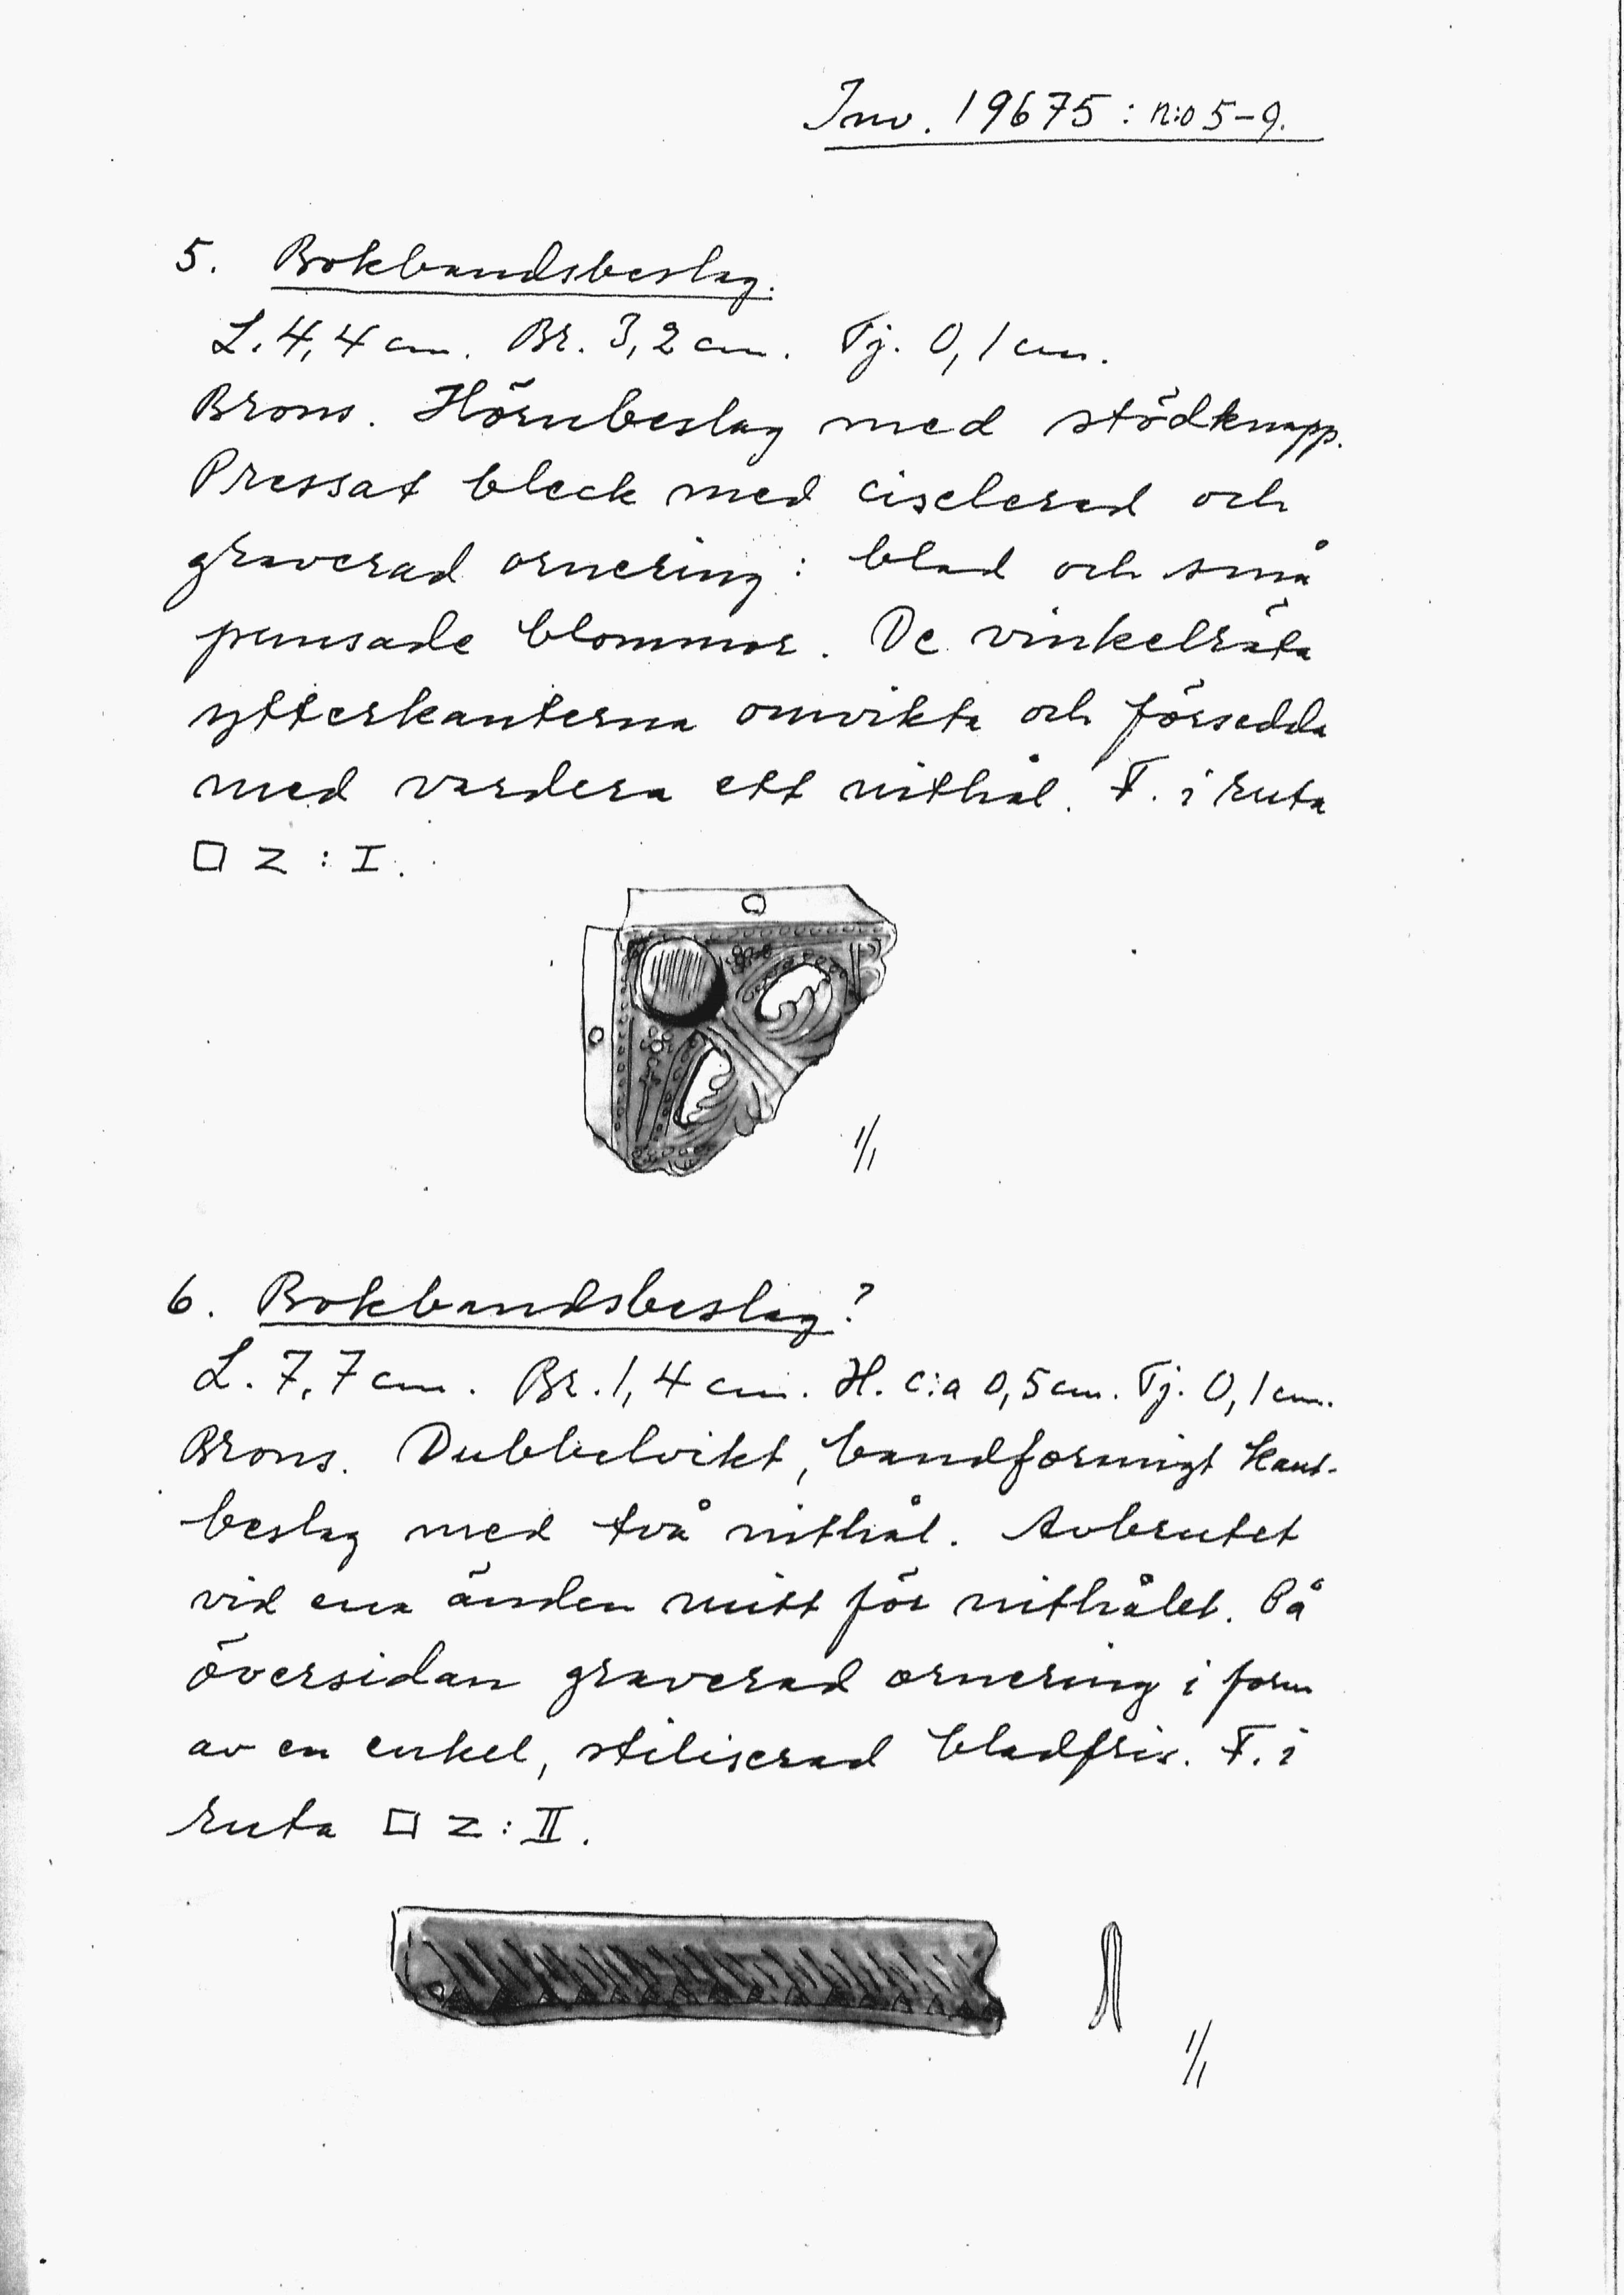 Inv. 19675 : n:o 5-9.
5. Bokbandsbeslag.
L. 4,4 cm. Br. 3,2 cm. Tj. 0,1 cm.
Brons. Hörnbeslag med stödknapp.
Pressat bleck med ciselerad och
graverad ornering : blad och små
punsade blommor. De vinkelräta
ytterkanterna omvikta och försedda
med vardera ett nithål. F. i ruta
□ Z : I.
1/1
6. Bokbandsbeslag?
L. 7,7 cm. Br. 1,4 cm. H. c:a 0,5 cm. Tj. 0,1 cm.
Brons. Dubbelvikt, bandformigt kant-
beslag med två nithål. Avbrutet
vid ena änden mitt för nithålet. På
översidan graverad ornering i form
av en enkel, stiliserad bladfris. F. i
ruta □ Z : II.
1/1